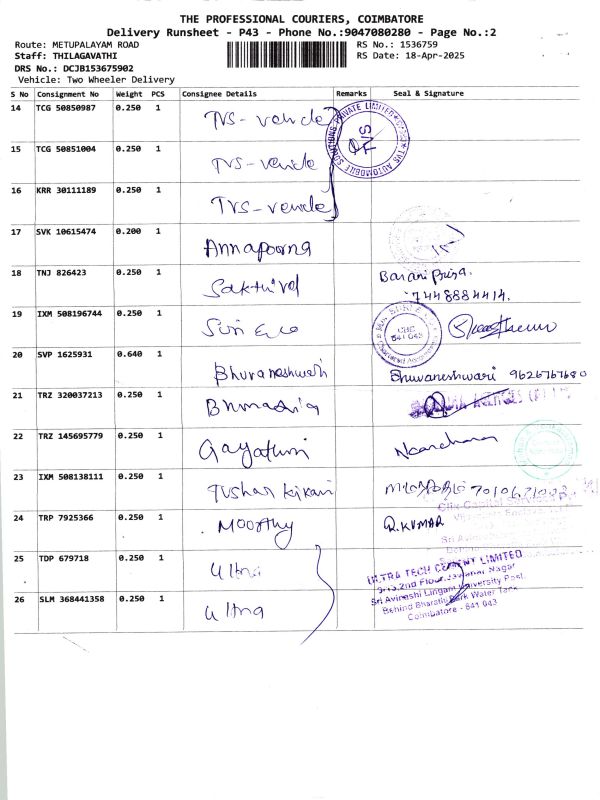 THE PROFESSIONAL COURIERS, COIMBATORE
Delivery Runsheet - P43 - Phone No.:9047080280 - Page No.:2
Route: METUPALAYAM ROAD RS No.: 1536759
Staff: THILAGAVATHI RS Date: 18-Apr-2025
DRS No.: DCJB153675902
Vehicle: Two Wheeler Delivery
S No Consignment No Weight PCS Consignee Details Remarks Seal & Signature
14 TCG 50850987 0.250 1 TVS-vehicle
15 TCG 50851004 0.250 1 TVS-vehicle
16 KRR 30111189 0.250 1 TVS-vehicle
TVS
17 SVK 10615474 0.200 1 Annapoorna
18 TNJ 826423 0.250 1 Sakthivel Baranipriya.
7448884414.
19 IXM 508196744 0.250 1 Suri & Co
CBE
641 043
20 SVP 1625931 0.640 1 Bhuvaneshwari Bhuvaneshwari 9626767680
21 TRZ 320037213 0.250 1
22 TRZ 145695779 0.250 1 Gayathiri
23 IXM 508138111 0.250 1 Tushar kiran
24 TRP 7925366 0.250 1 Moorthy R.KUMAR
25 TDP 679718 0.250 1 Ultra
26 SLM 368441358 0.250 1 Ultra
ULTRA TECH CEMENT LIMITED
2nd Floor, Jawahar Nagar
Sri Avinashi Lingam University Post
Behind Bharathi Park Water Tank
Coimbatore - 641 043